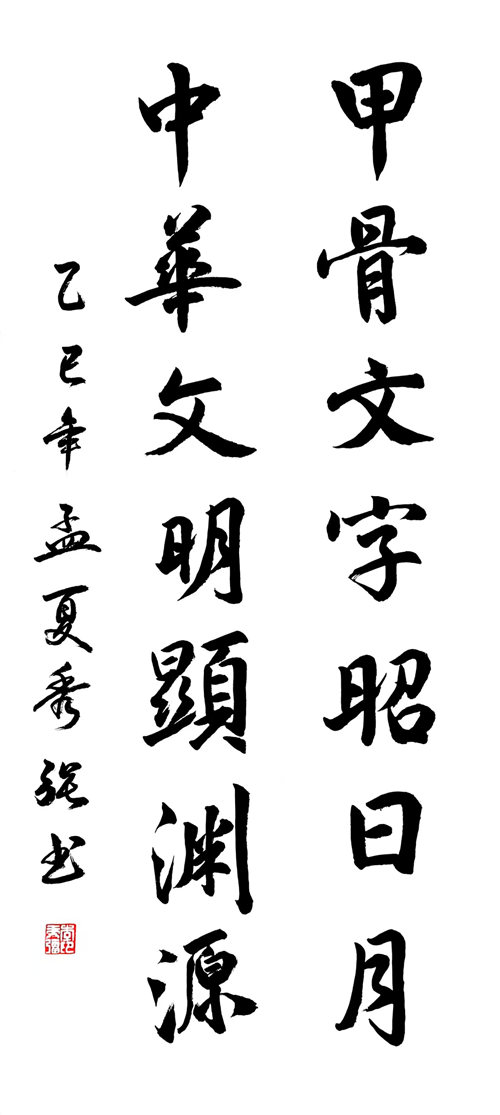 甲骨文字昭日月
中華文明顯渊源
乙巳年孟夏秀书